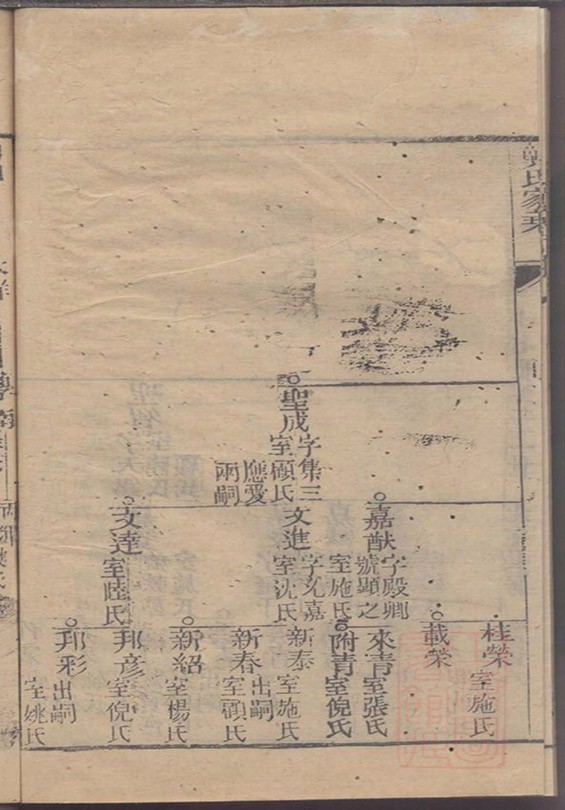 氏家乘
聖成
字集三
室顧氏
應愛
兩嗣
嘉猷
字殿卿
號顯之
室施氏
文進
字允嘉
室沈氏
文達
室陸氏
桂榮
室施氏
載榮
來青室張氏
附青室倪氏
新泰
室施氏
新春
出嗣
室顧氏
新紹
室楊氏
邦彥
室倪氏
邦彩
出嗣
室姚氏